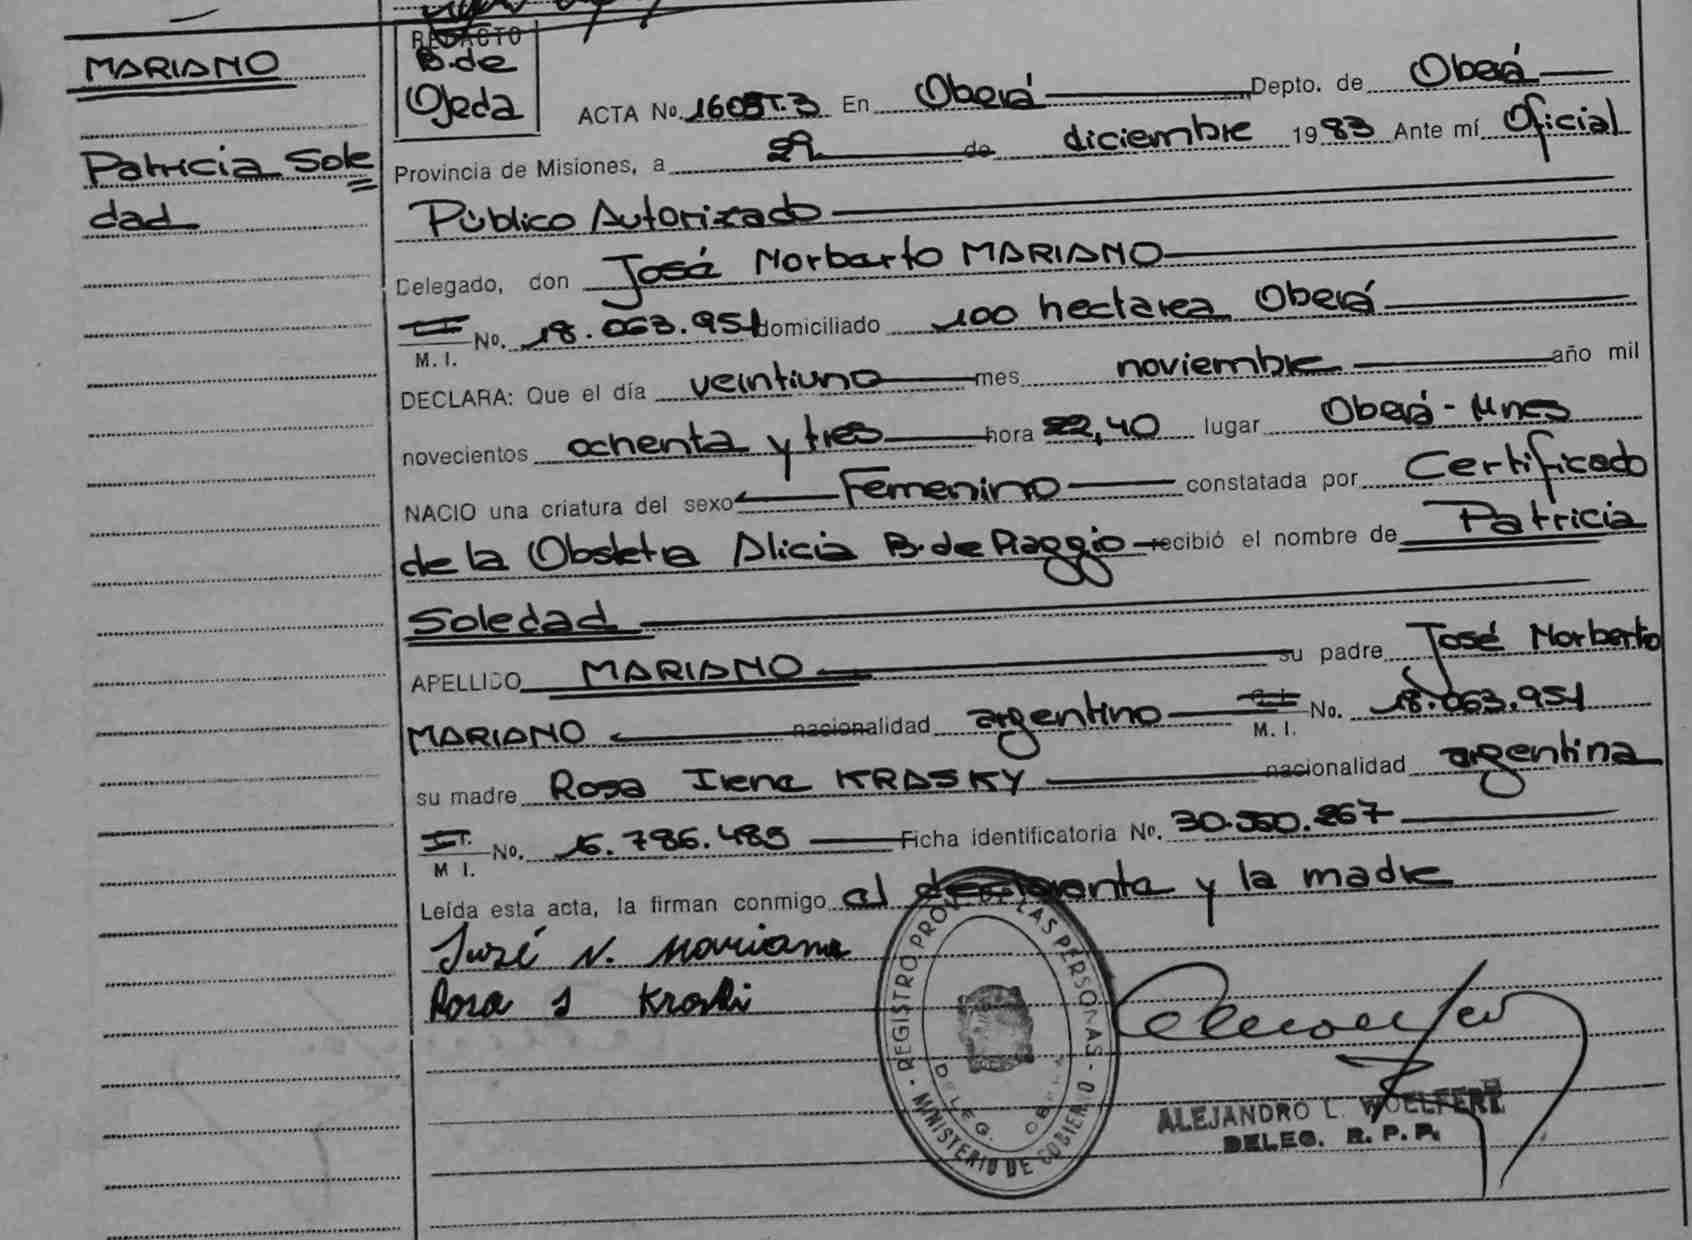 MARIANO
Patricia Sole
dad
REDACTO
B. de
Ojeda
ACTA No. 1605T.3 En Oberá Depto. de Oberá
Provincia de Misiones, a 29 de diciembre 1983 Ante mí Oficial
Público Autorizado
Delegado, don José Norberto MARIANO
M. I. No. 18.063.951 domiciliado 100 hectarea Oberá
DECLARA: Que el día veintiuno mes noviembre año mil
novecientos ochenta y tres hora 22,40 lugar Oberá - Mnes
NACIO una criatura del sexo Femenino constatada por Certificado
de la Obstetra Alicia B. de Piaggio recibió el nombre de Patricia
Soledad
APELLIDO MARIANO su padre José Norberto
MARIANO nacionalidad argentino M. I. No. 18.063.951
su madre Rosa Irene KRASKY nacionalidad argentina
M I. No. 16.786.485 Ficha identificatoria No. 30.550.267
Leída esta acta, la firman conmigo el declarante y la madre
José N. Mariano
Rosa I Kraski
REGISTRO PROV. DE LAS PERSONAS - MINISTERIO DE GOBIERNO
DELEG. OBERA
ALEJANDRO L. WOELFERT
DELEG. R. P. P.